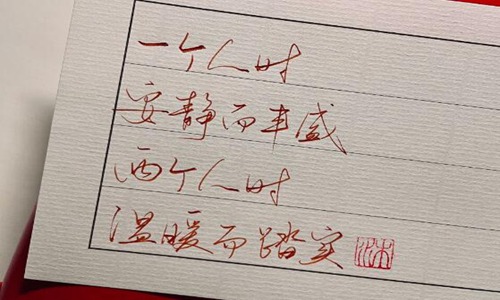 一个人时
安静而丰盛
两个人时
温暖而踏实